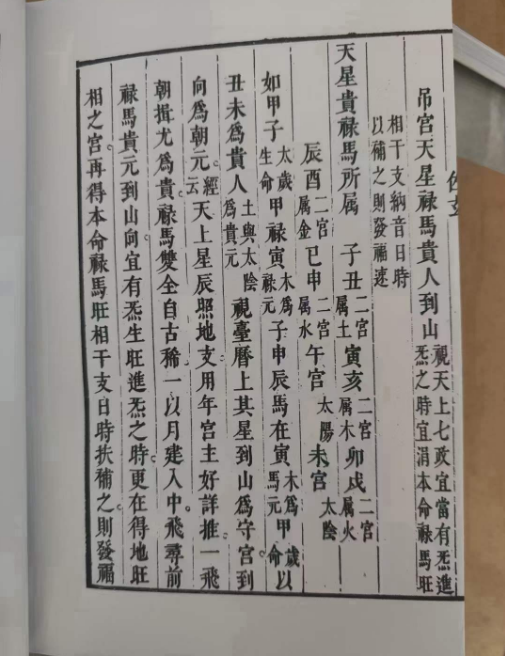 吊宮天星禄馬貴人到山視天上七政宜當有炁進炁之時宜涓本命禄馬旺
相干支納音日時以補之則發福速
天星貴禄馬所属 子丑二宮属土寅亥二宮属木卯戌二宮属火
辰酉二宮属金巳申二宮属水午宮太陽未宮太陰
如甲子太歲生命甲禄寅木爲禄元子申辰馬在寅木爲馬元甲歲命以
丑未爲貴人土與太陰爲貴元視臺曆上其星到山爲守宮到
向爲朝元。經云天上星辰照地支用年宮主好詳推一飛
朝揖尤爲貴禄馬雙全自古稀一以月建入中。飛尋前
禄馬貴元到山向宜有炁生旺進炁之時。更在得地旺
相之宮。再得本命禄馬旺相干支日時扶補之。則發福